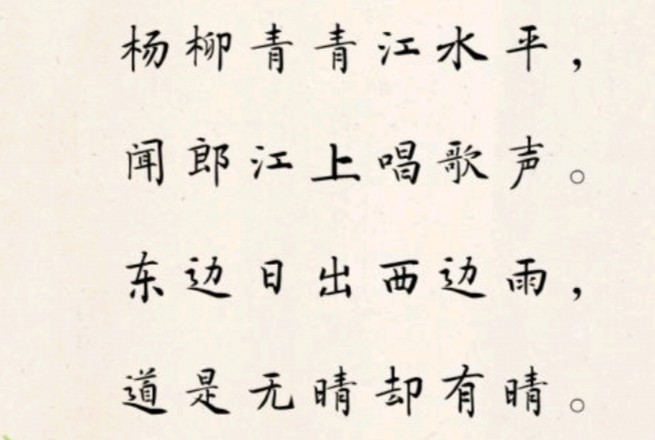 杨柳青青江水平，
闻郎江上唱歌声。
东边日出西边雨，
道是无晴却有晴。